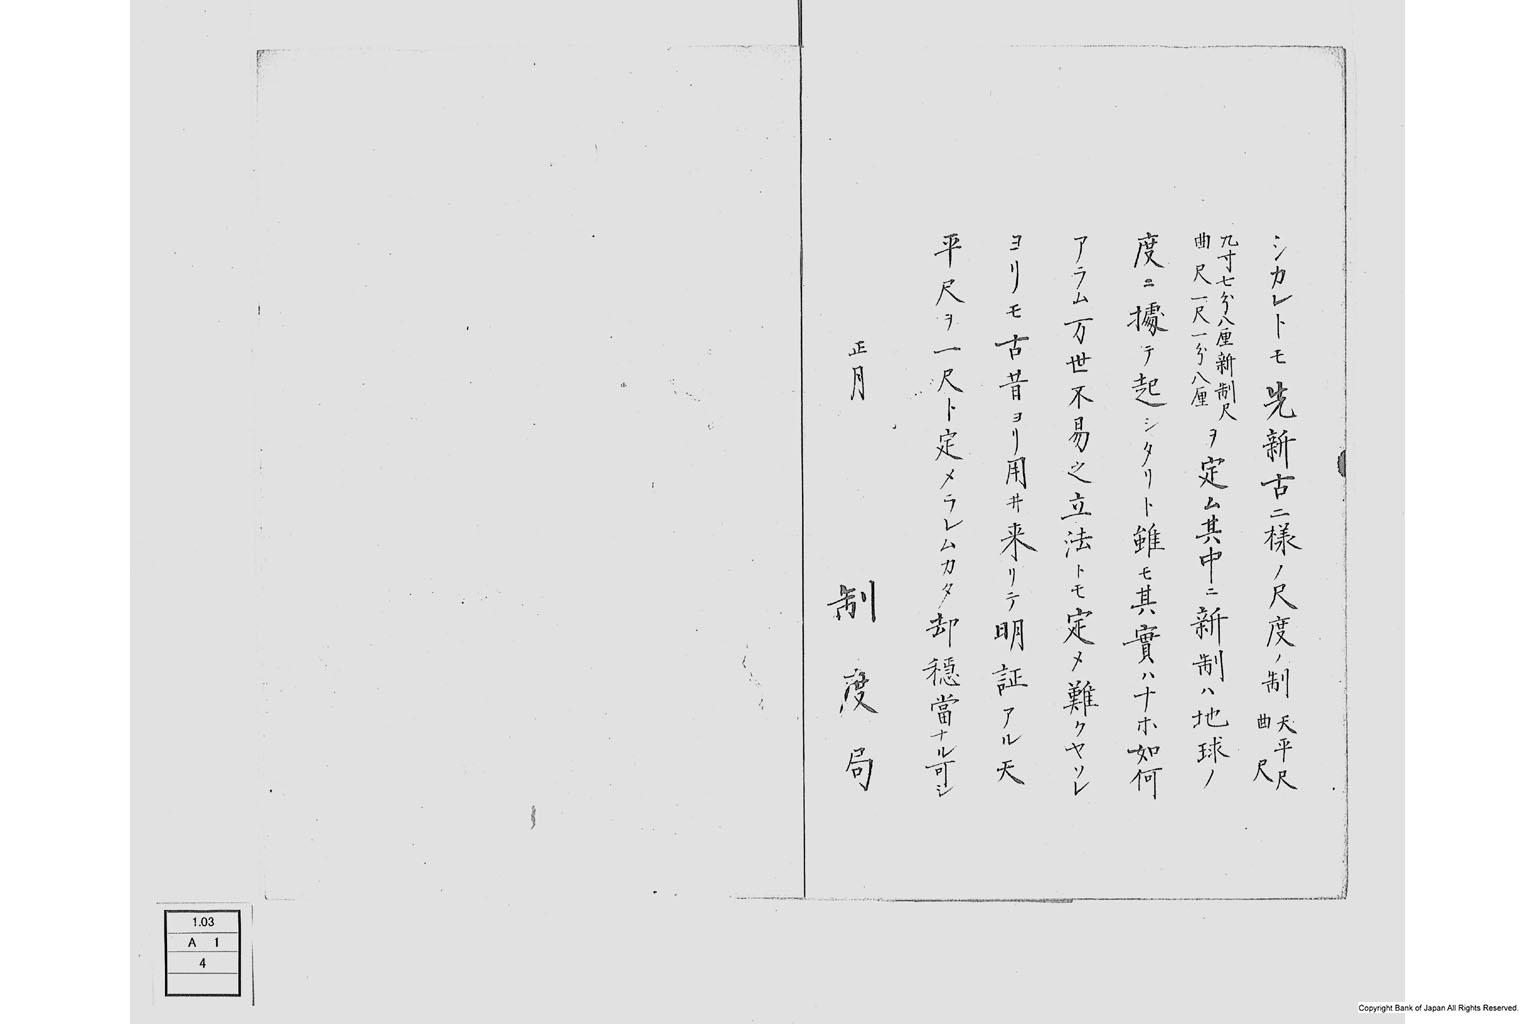 シカレトモ先新古二様ノ尺度ノ制天平尺曲尺
九寸七分八厘新制尺曲尺一尺一分八厘ヲ定ム其中ニ新制ハ地球ノ
度ニ據テ起シタリト雖モ其實ハナホ如何
アラム万世不易之立法トモ定メ難クヤソレ
ヨリモ古昔ヨリ用井来リテ明証アル天
平尺ヲ一尺ト定メラレムカタ却穏當ナル可シ
正月
制度局
1.03
A 1
4
Copyright Bank of Japan All Rights Reserved.